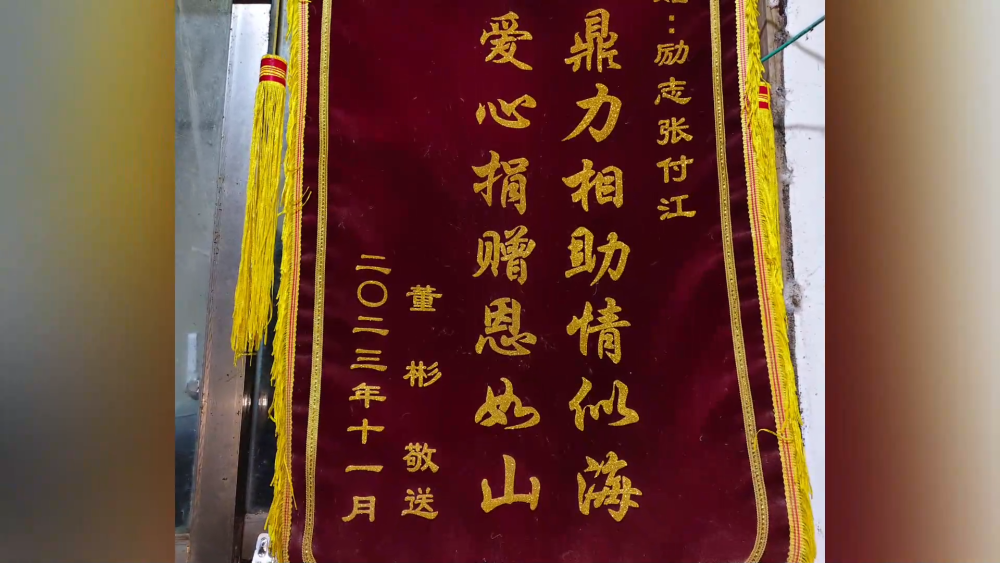 ：励志张付江
鼎力相助情似海
爱心捐赠恩如山
董彬敬送
二〇二三年十一月